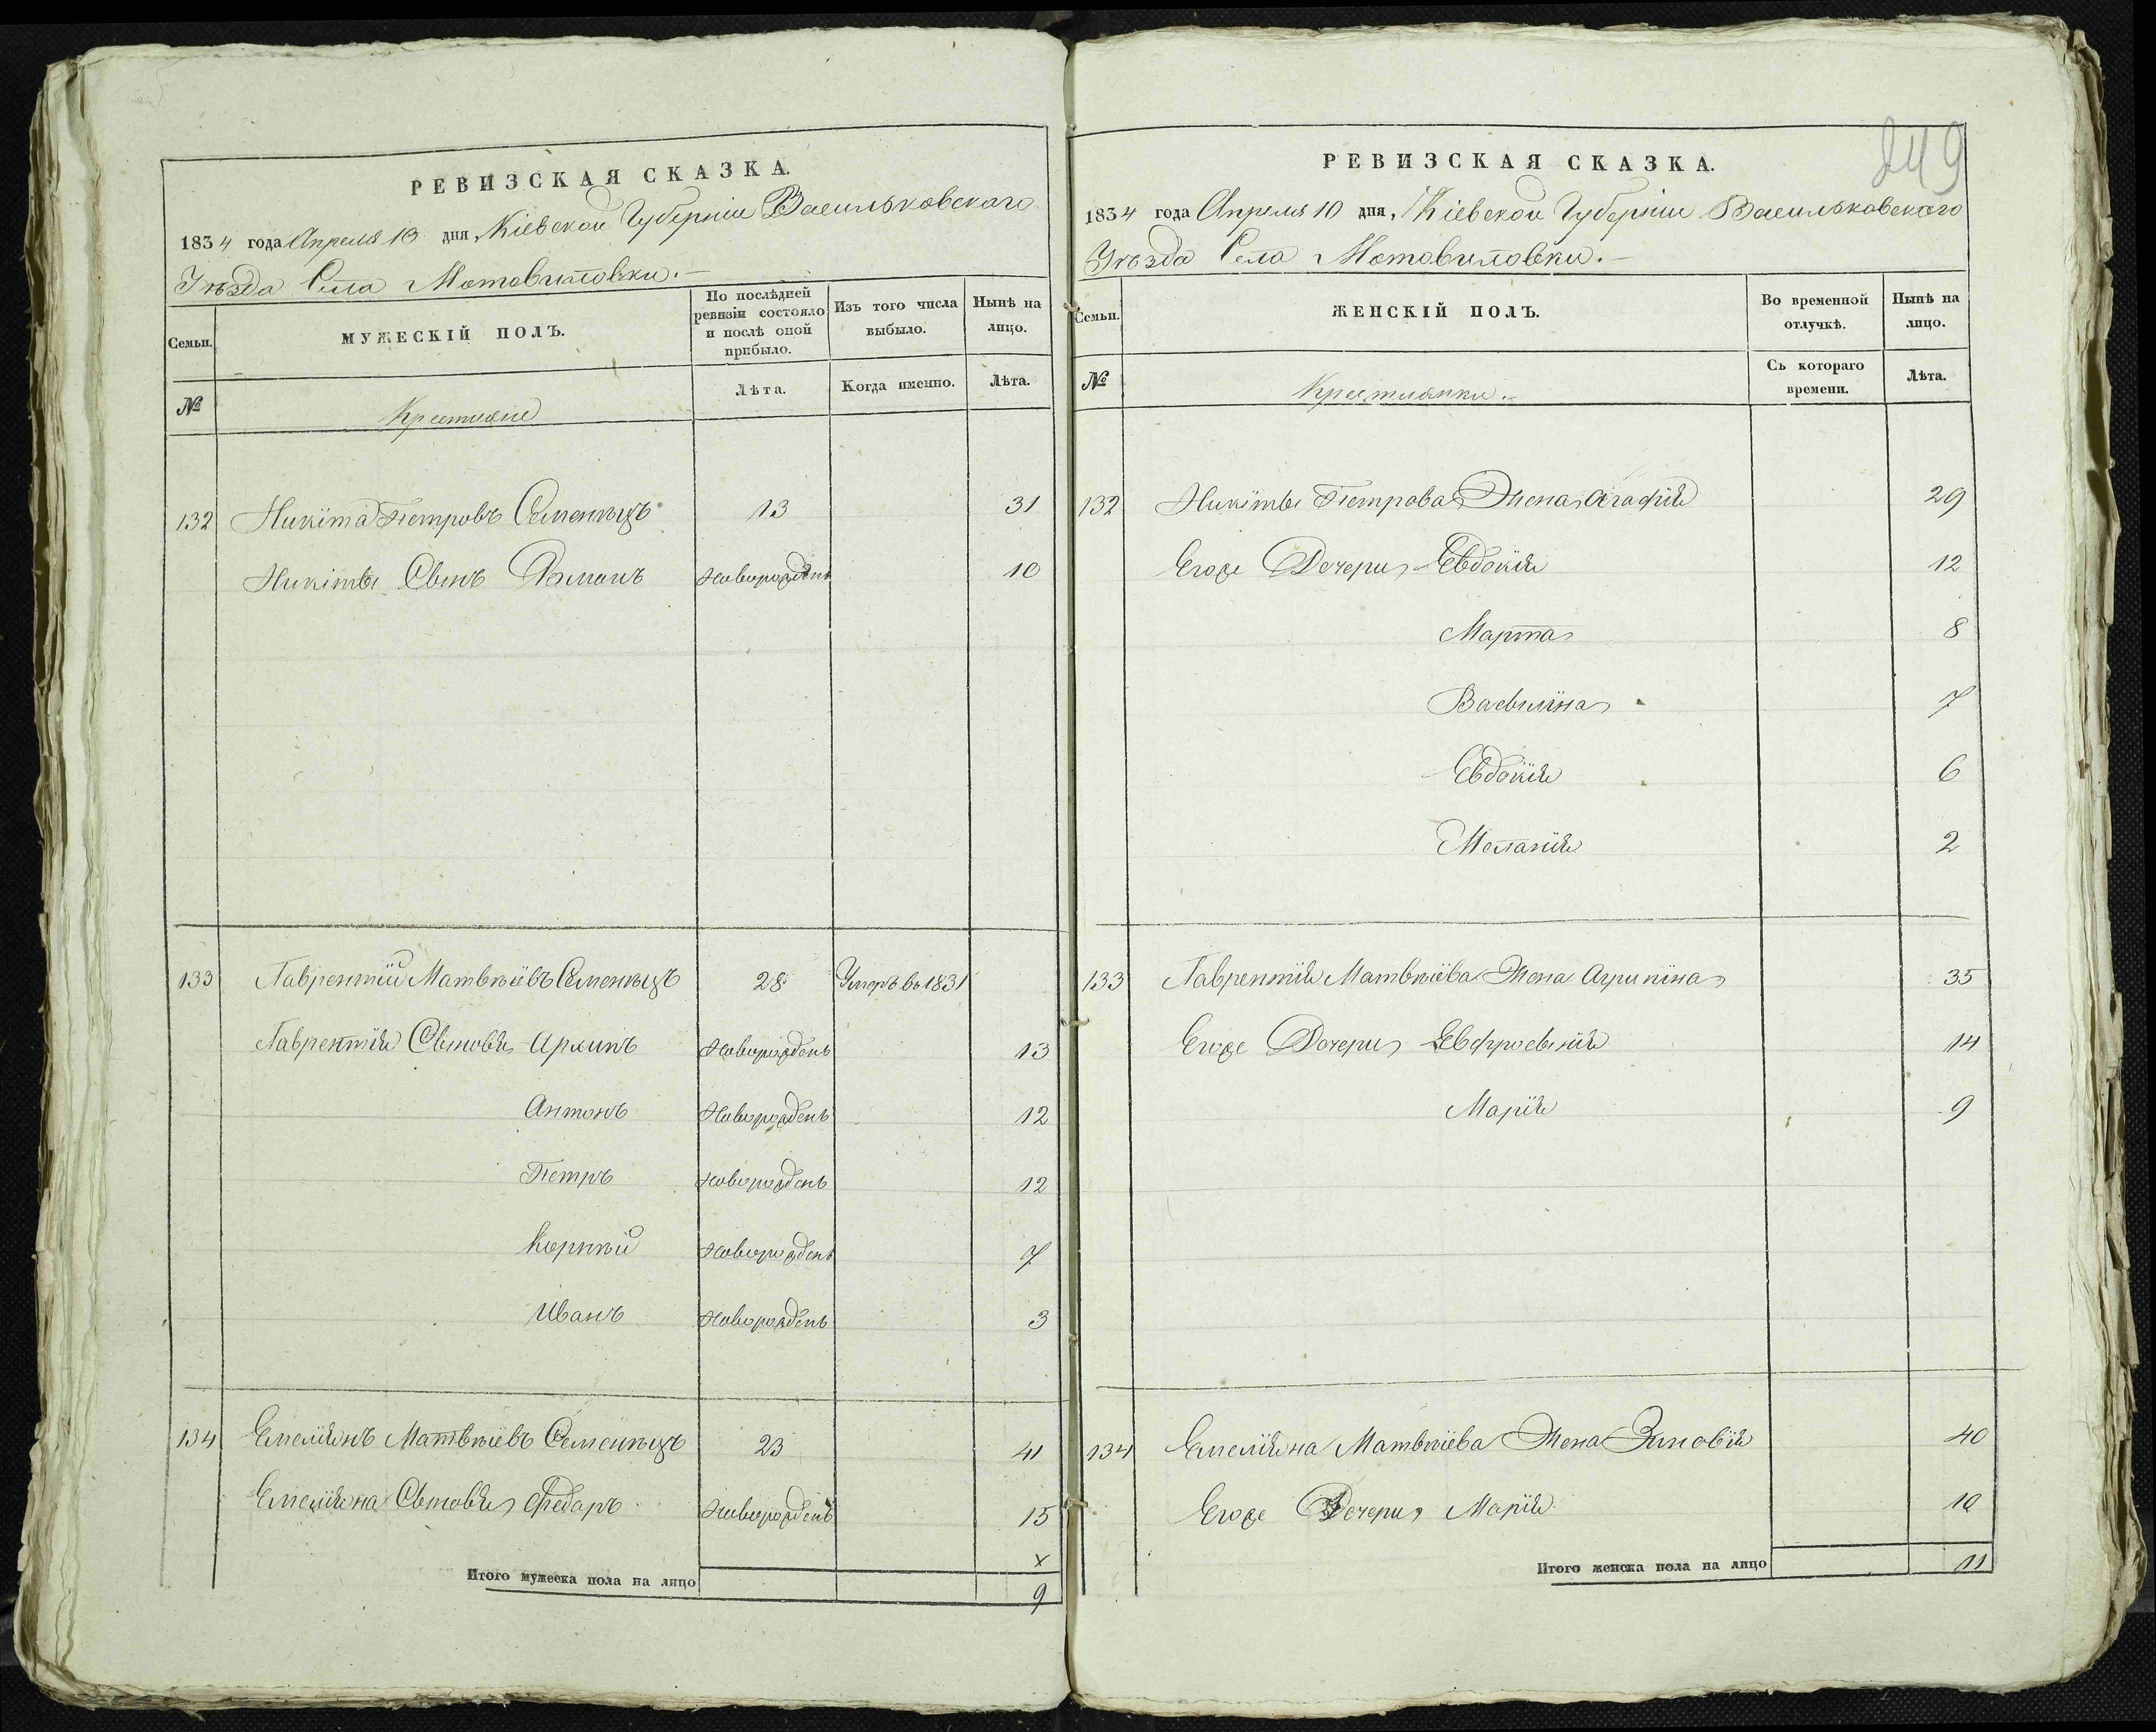 РЕВИЗСКАЯ СКАЗКА.
1834 года Апреля 10 дня, Кіевской Губерніи Васильковского
Уѣзда Села Мотовиловки.
Семьи.
МУЖЕСКІЙ ПОЛЪ.
По послѣдней ревизіи состояло и послѣ оной прибыло.
Изъ того числа выбыло.
Нынѣ на лицо.
№
Крестияне
Лѣта.
Когда именно.
Лѣта.
132 Никїта Петровъ Семенѣцъ 13 31
Никїты Сынъ Романъ Новорожденъ 10
133 Лаврентїй Матвѣївъ Семенѣцъ 28 Умеръ въ 1831
Лаврентїя Сыновя Архипъ Новорожденъ 13
Антонъ Новорожденъ 12
Петръ Новорожденъ 12
Корнѣй Новорожденъ 7
Иванъ Новорожденъ 3
134 Емелїянъ Матвѣївъ Семенѣцъ 23 41
Емелїяна Сыновя Федоръ Новорожденъ 15
x
Итого мужеска пола на лицо 9
249
РЕВИЗСКАЯ СКАЗКА.
1834 года Апреля 10 дня, Кіевской Губерніи Васильковского
Уѣзда Села Мотовиловки.
Семьи.
ЖЕНСКІЙ ПОЛЪ.
Во временной отлучкѣ.
Нынѣ на лицо.
№
Крестиянки.
Съ котораго времени.
Лѣта.
132 Никїты Петрова Жена Агафїя 29
Егоже Дочери Евдокїя 12
Марта 8
Васьилїна 7
Евдокїя 6
Меланїя 2
133 Лаврентїя Матвѣїва Жена Агрипїна 35
Егоже Дочери Евфросынїя 14
Марїя 9
134 Емелїяна Матвѣїва Жена Зиновїя 40
Егоже Дочери Марїя 10
Итого женска пола на лицо 11